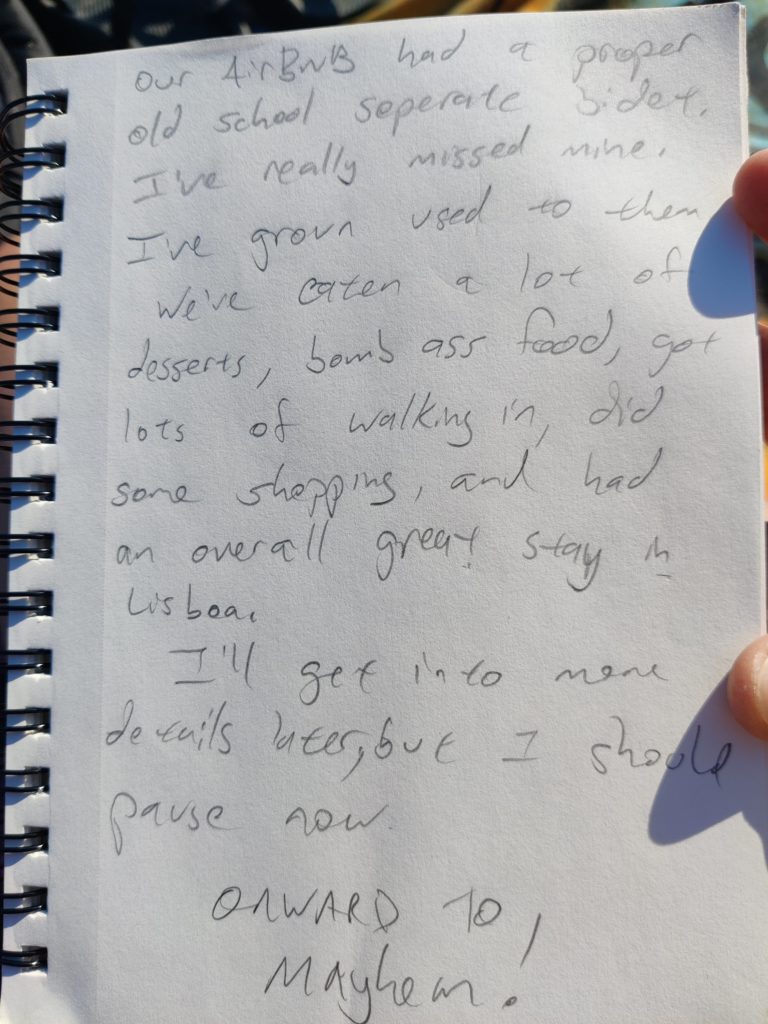 Our AirBNB had a proper
old school seperate bidet.
I've really missed mine.
I've grown used to them
We've eaten a lot of
desserts, bomb ass food, got
lots of walking in, did
some shopping, and had
an overall great stay in
Lisboa.
I'll get into more
details later, but I should
pause now.
ONWARD TO,
Mayhem!